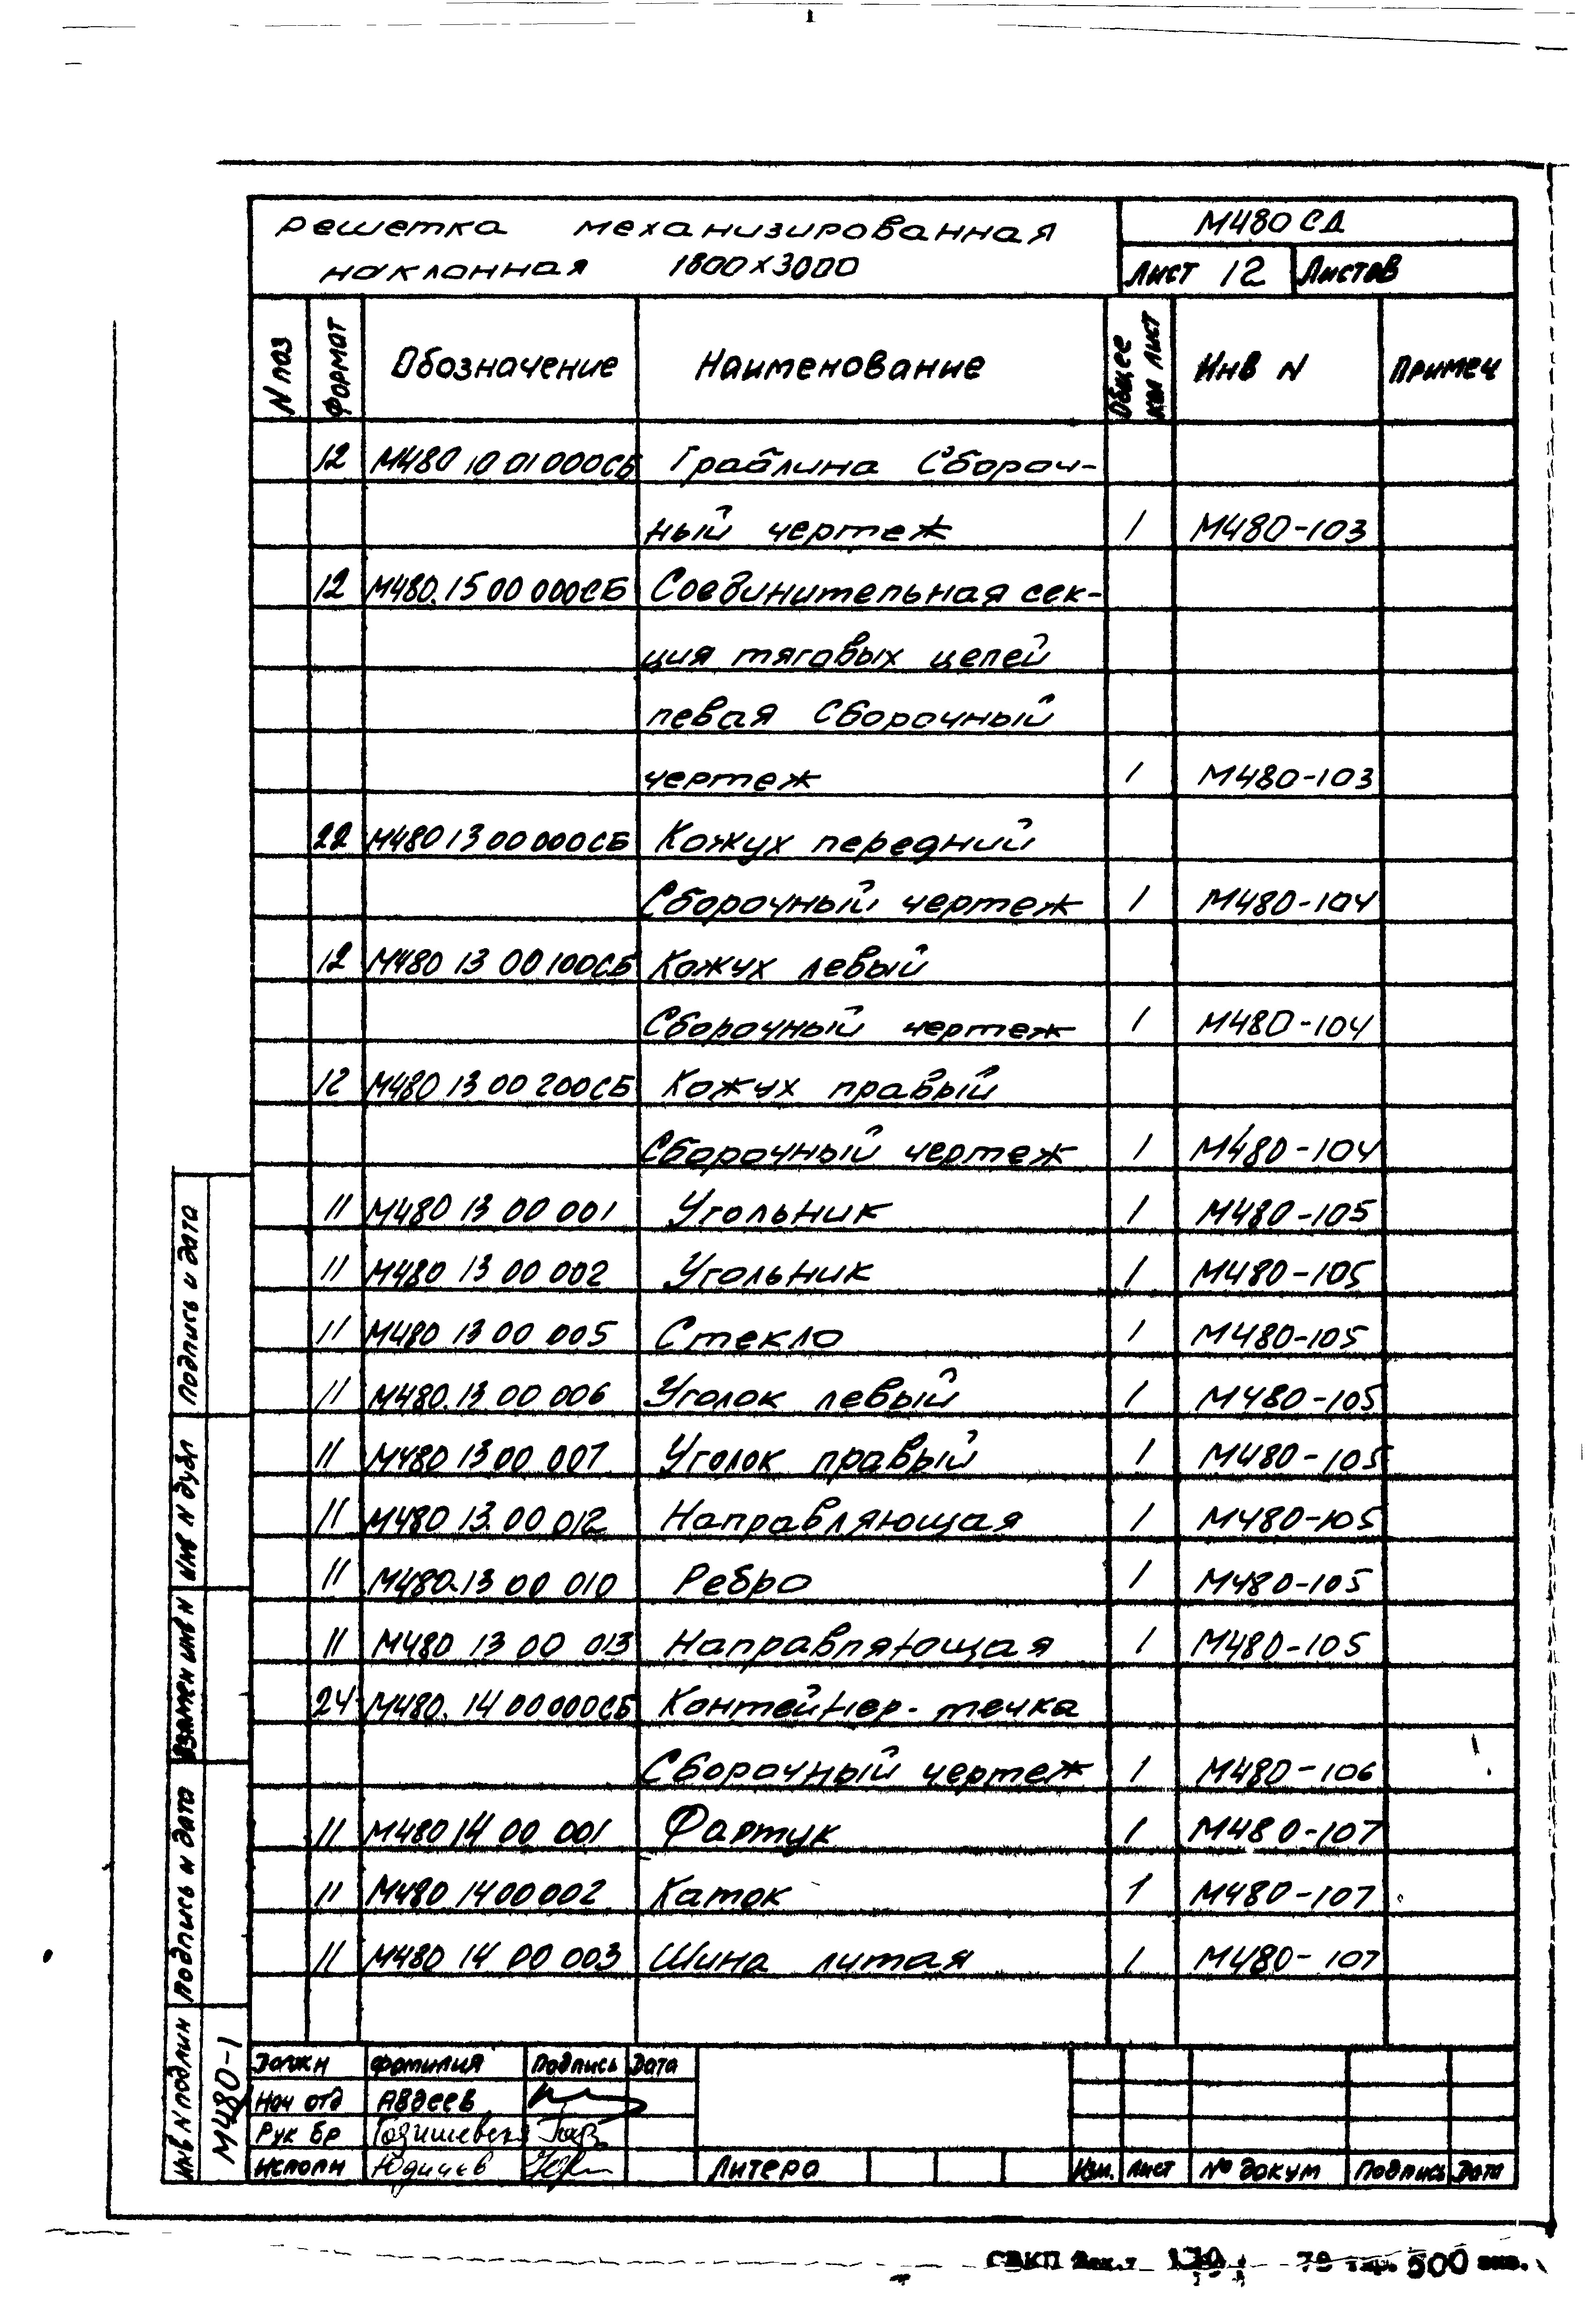 1
Решетка механизированная М480 СД
наклонная 1800х3000 Лист 12 Листов
N поз Формат Обозначение Наименование Общее кол лист Инв N Примеч
12 М480 10 01 000СБ Граблина Сбороч-
ный чертеж 1 М480-103
12 М480.15 00 000СБ Соединительная сек-
ция тяговых цепей
левая Сборочный
чертеж 1 М480-103
22 М480 13 00 000СБ Кожух передний
Сборочный чертеж 1 М480-104
12 М480 13 00 100СБ Кожух левый
Сборочный чертеж 1 М480-104
12 М480 13 00 200СБ Кожух правый
Сборочный чертеж 1 М480-104
11 М480 13 00 001 Угольник 1 М480-105
11 М480 13 00 002 Угольник 1 М480-105
11 М480 13 00 005 Стекло 1 М480-105
11 М480.13 00 006 Уголок левый 1 М480-105
11 М480 13 00 007 Уголок правый 1 М480-105
11 М480 13.00 012 Направляющая 1 М480-105
11 М480.13 00 010 Ребро 1 М480-105
11 М480 13 00 013 Направляющая 1 М480-105
24 М480. 14 00 000СБ Контейнер-течка
Сборочный чертеж 1 М480-106
11 М480 14 00 001 Фартук 1 М480-107
11 М480 14 00 002 Каток 1 М480-107
11 М480 14 00 003 Шина литая 1 М480-107
Подпись и дата
Инв N дубл
Взамен инв N
Подпись и дата
Инв N подлин М480-1
Должн Фамилия Подпись Дата
Нач отд Авдеев
Рук бр
Исполн Литера Изм. Лист № докум Подпись Дата
СВКП Зак. 500 экз.